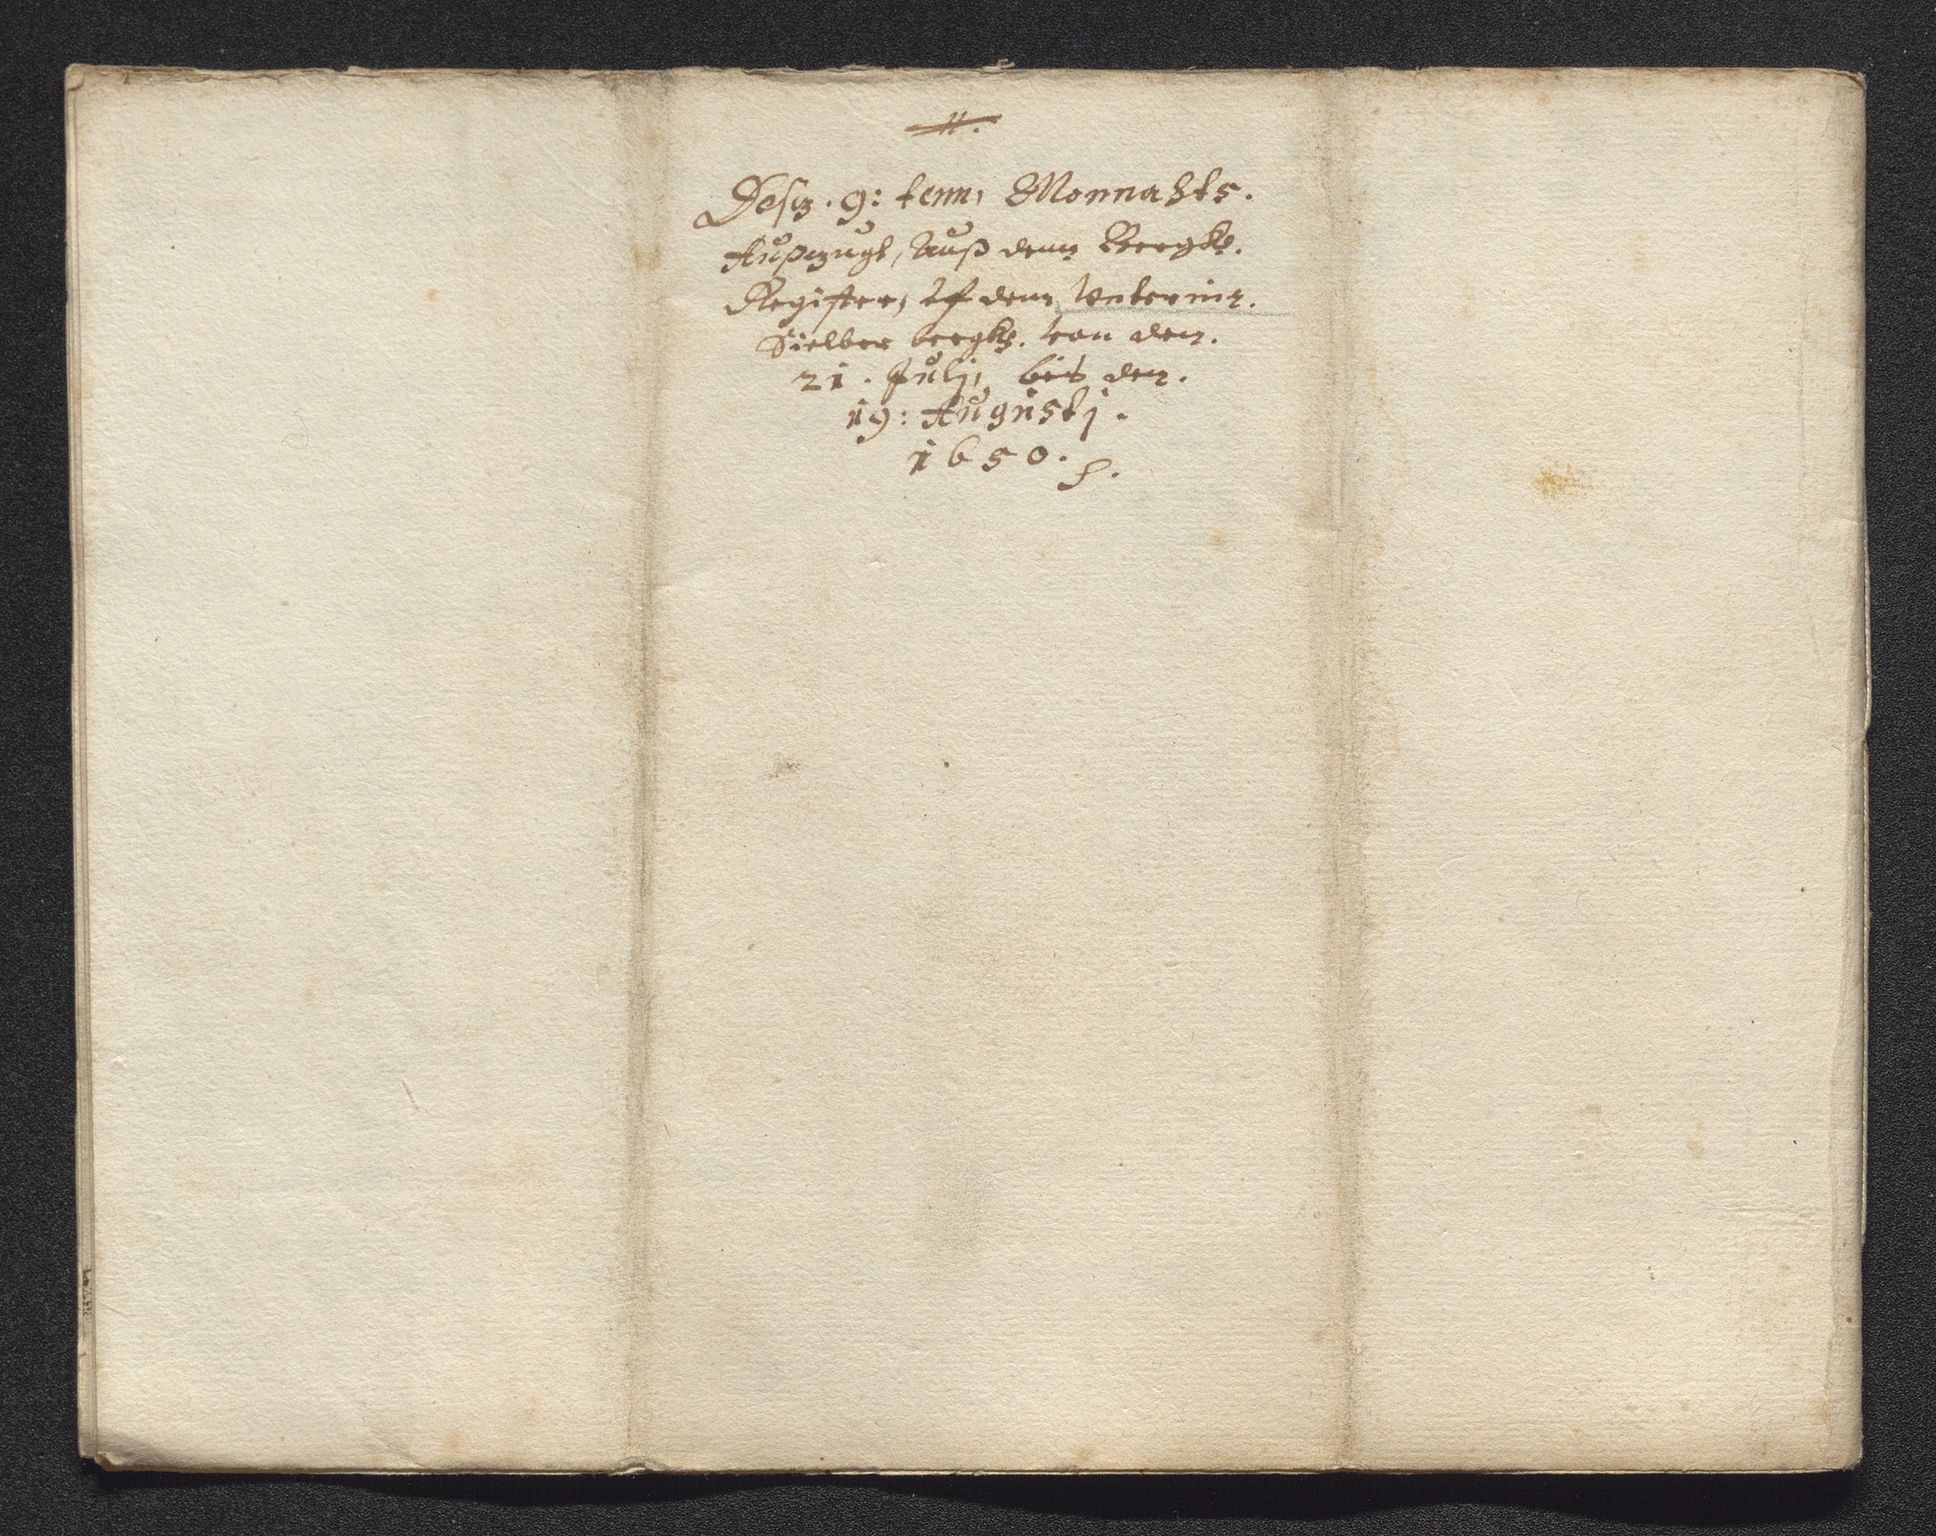 11.
Deß. 9: tenn, Monnahts.
Außzugk, Auß dem Bergk.
Register, uf dem Unterin.
Sielber bergk. von den.
21. Julj, bis den.
19: Augustj.
1650.